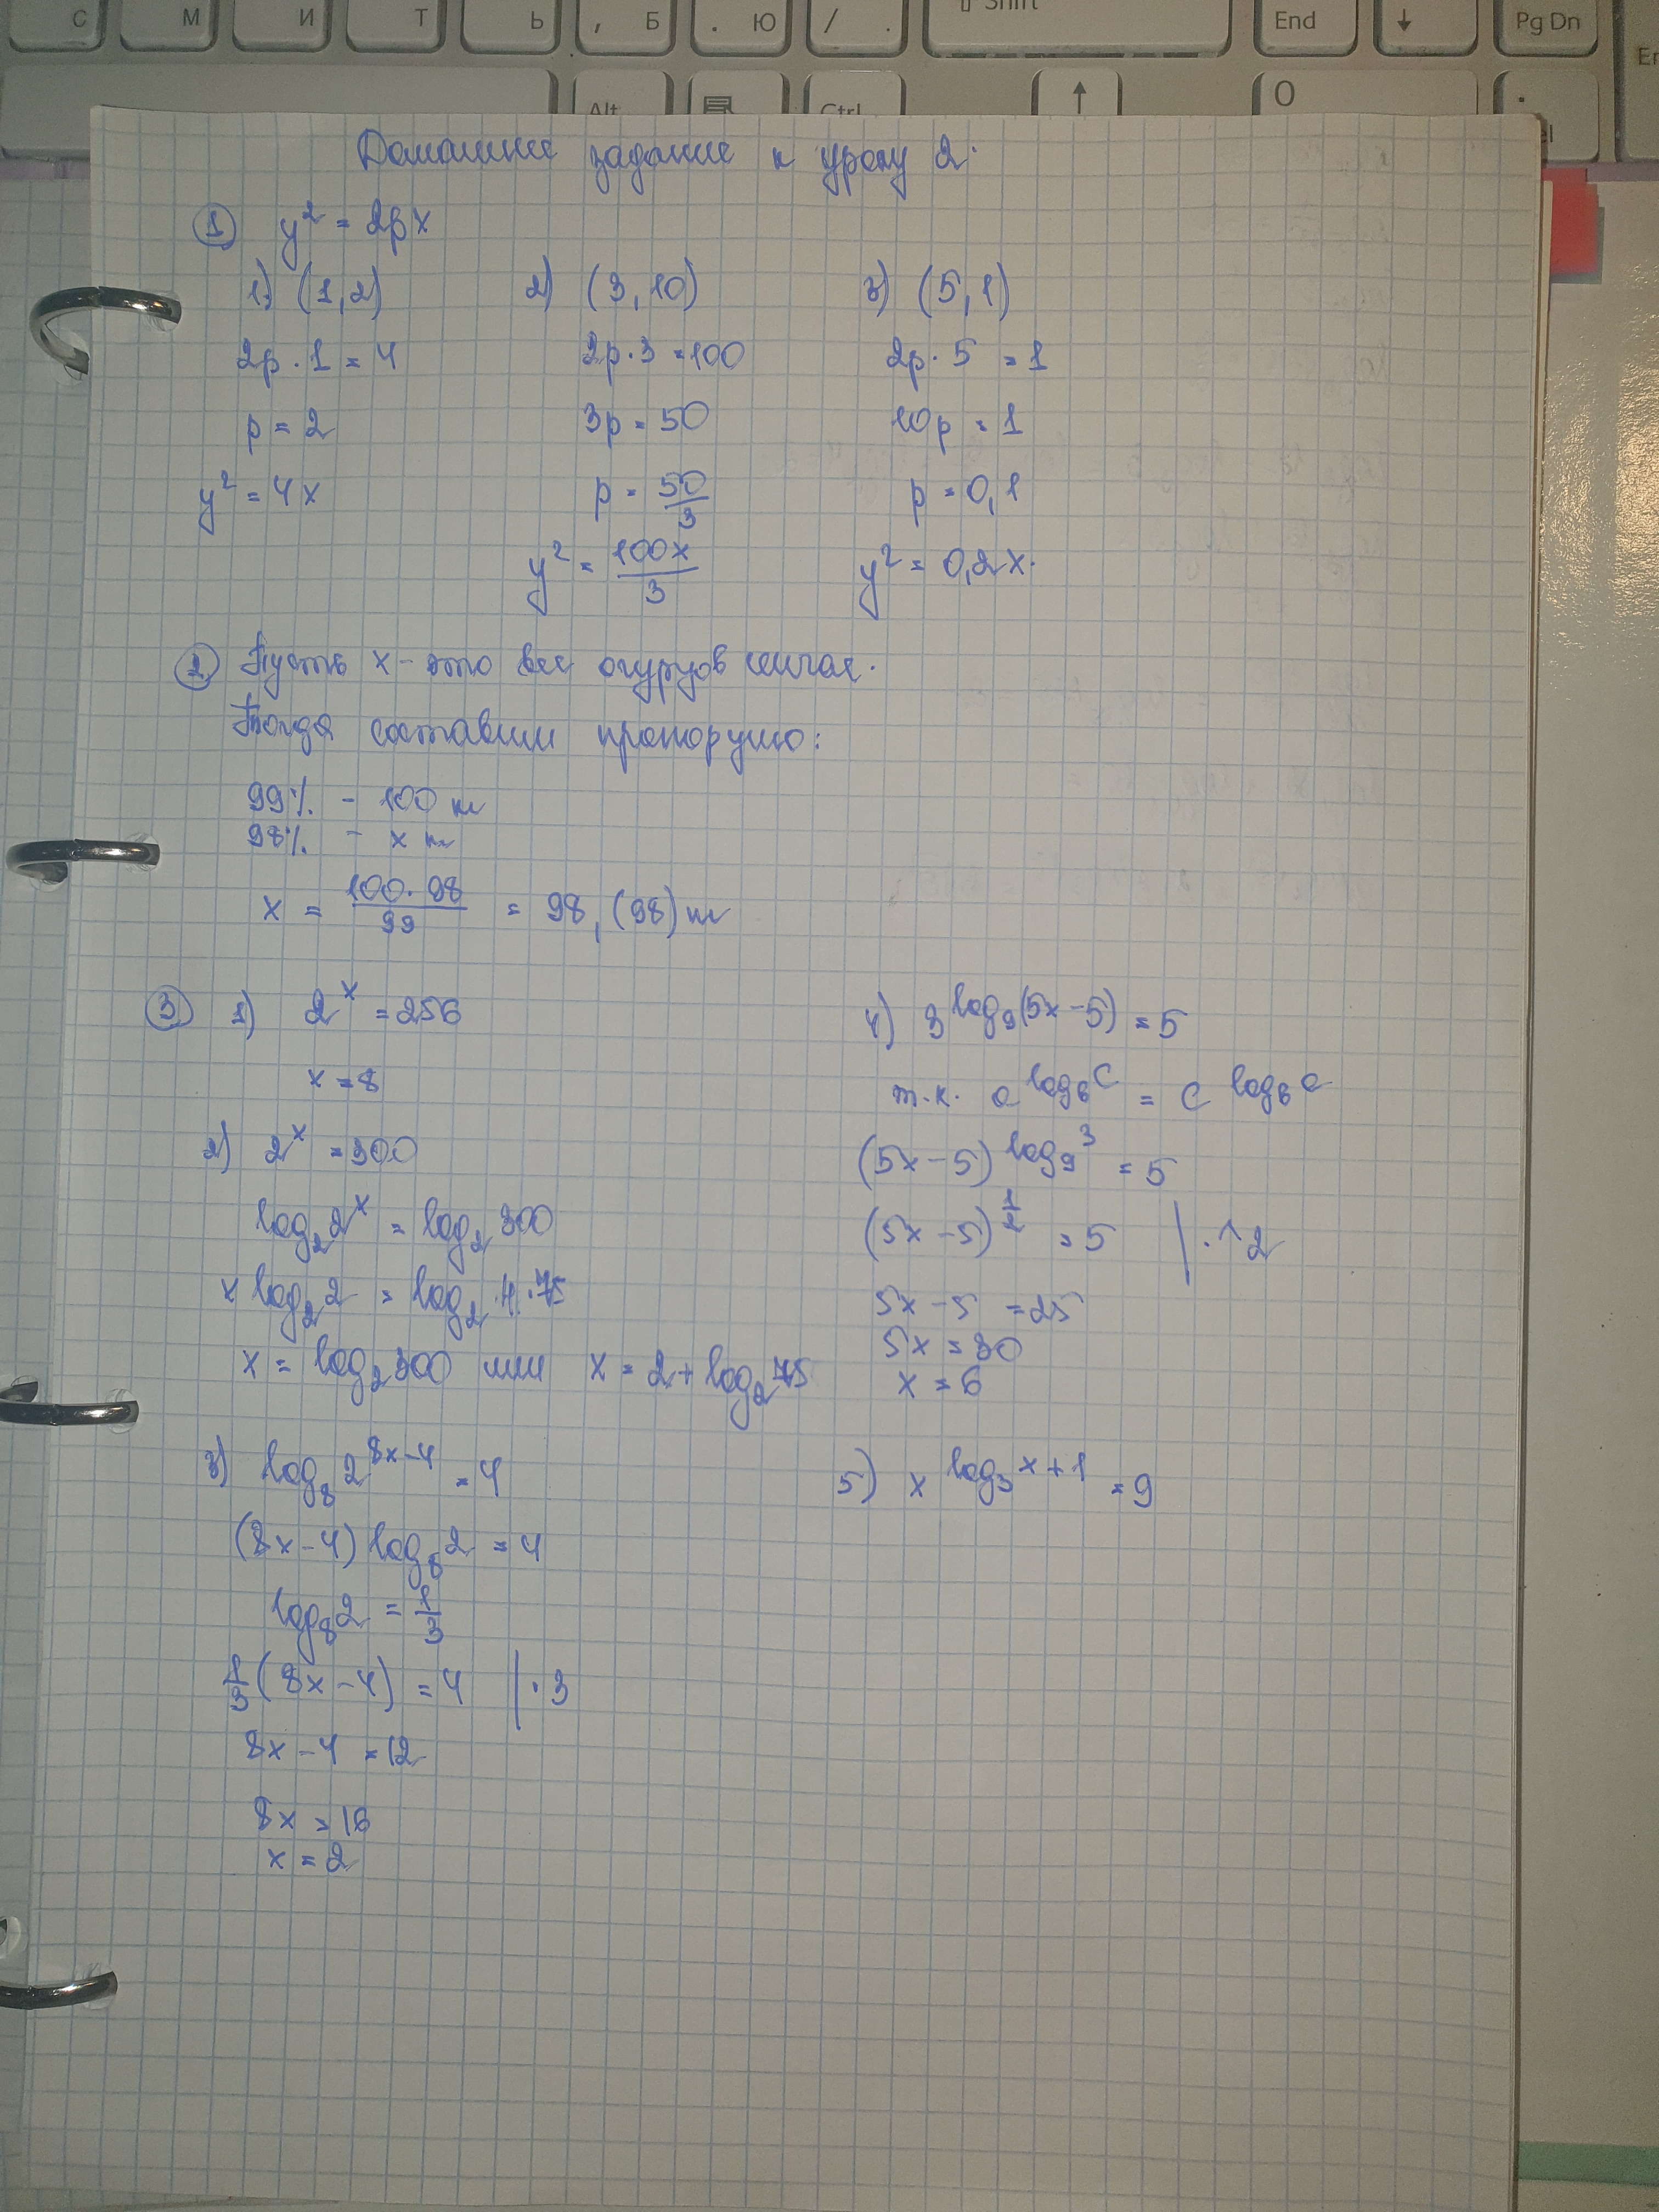 С М И Т Ь , Б . Ю / . ⇧ Shift End ↓ Pg Dn
Alt Ctrl ↑ O .
Домашнее задание к уроку 2.
① y² = 2px
1) (1,2) 2) (3,10) 3) (5,1)
2p · 1 = 4 2p · 3 = 100 2p · 5 = 1
p = 2 3p = 50 10p = 1
y² = 4x p = 50/3 p = 0,1
y² = 100x/3 y² = 0,2x.
② Пусть x - это вес огурцов сейчас.
Тогда составим пропорцию:
99% - 100 кг
98% - x кг
x = 100·98/99 = 98,(98) кг
③ 1) 2^x = 256
x = 8
2) 2^x = 300
log₂2^x = log₂300
x log₂2 = log₂4·75
x = log₂300 или x = 2 + log₂75
3) log₈2^(8x-4) = 4
(8x-4) log₈2 = 4
log₈2 = 1/3
1/3(8x-4) = 4 | · 3
8x - 4 = 12
8x = 16
x = 2
4) 3^log₉(5x-5) = 5
т.к. a^log_b c = c^log_b a
(5x-5)^log₉3 = 5
(5x-5)^1/2 = 5 | · ^2
5x - 5 = 25
5x = 30
x = 6
5) x^log₃x+1 = 9